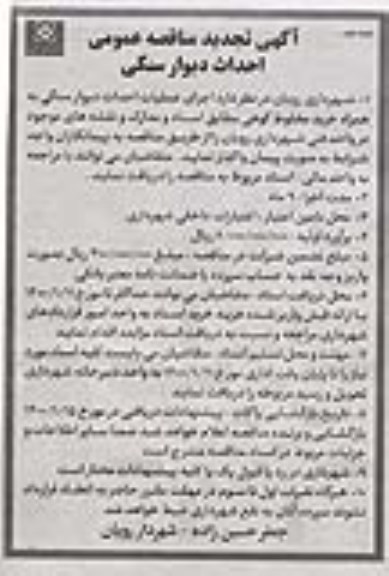 آگهی تجدید مناقصه عمومی
احداث دیوار سنگی
۱- شهرداری رویان در نظر دارد اجرای عملیات احداث دیوار سنگی به
همراه خرید مخلوط کوهی مطابق اسناد و مدارک و نقشه های موجود
در واحد فنی شهرداری رویان را از طریق مناقصه به پیمانکاران واجد
شرایط به صورت پیمان واگذار نماید. متقاضیان می توانند با مراجعه
به واحد مالی اسناد مربوط به مناقصه را دریافت نمایند.
۲- مدت اجرا: ماه
۳- محل تامین اعتبار: اعتبارات داخلی شهرداری
۴- برآورد اولیه: ریال
۵- مبلغ تضمین شرکت در مناقصه: مبلغ ریال بصورت
واریز وجه نقد به حساب سپرده یا ضمانت نامه معتبر بانکی
۶- محل دریافت اسناد: متقاضیان می توانند حداکثر تا مورخ
با ارائه فیش واریز شده خرید اسناد به واحد امور قراردادهای
شهرداری مراجعه و نسبت به دریافت اسناد مزایده اقدام نمایند
۷- مهلت و محل تسلیم اسناد: متقاضیان می بایست کلیه اسناد مورد
نیاز را تا پایان وقت اداری مورخ به واحد دبیرخانه شهرداری
تحویل و رسید مربوطه را دریافت نمایند
۸- تاریخ بازگشایی پاکات: پیشنهادات دریافتی در مورخ
بازگشایی و برنده مناقصه اعلام خواهد شد ضمنا سایر اطلاعات و
جزئیات مربوط در اسناد مناقصه مندرج است
۹- شهرداری در رد یا قبول یک یا کلیه پیشنهادات مختار است
۱۰- هرگاه نفرات اول تا سوم در مهلت مقرر حاضر به انعقاد قرارداد
نشوند سپرده آنان به نفع شهرداری ضبط خواهد شد
حسین زاده - شهردار رویان